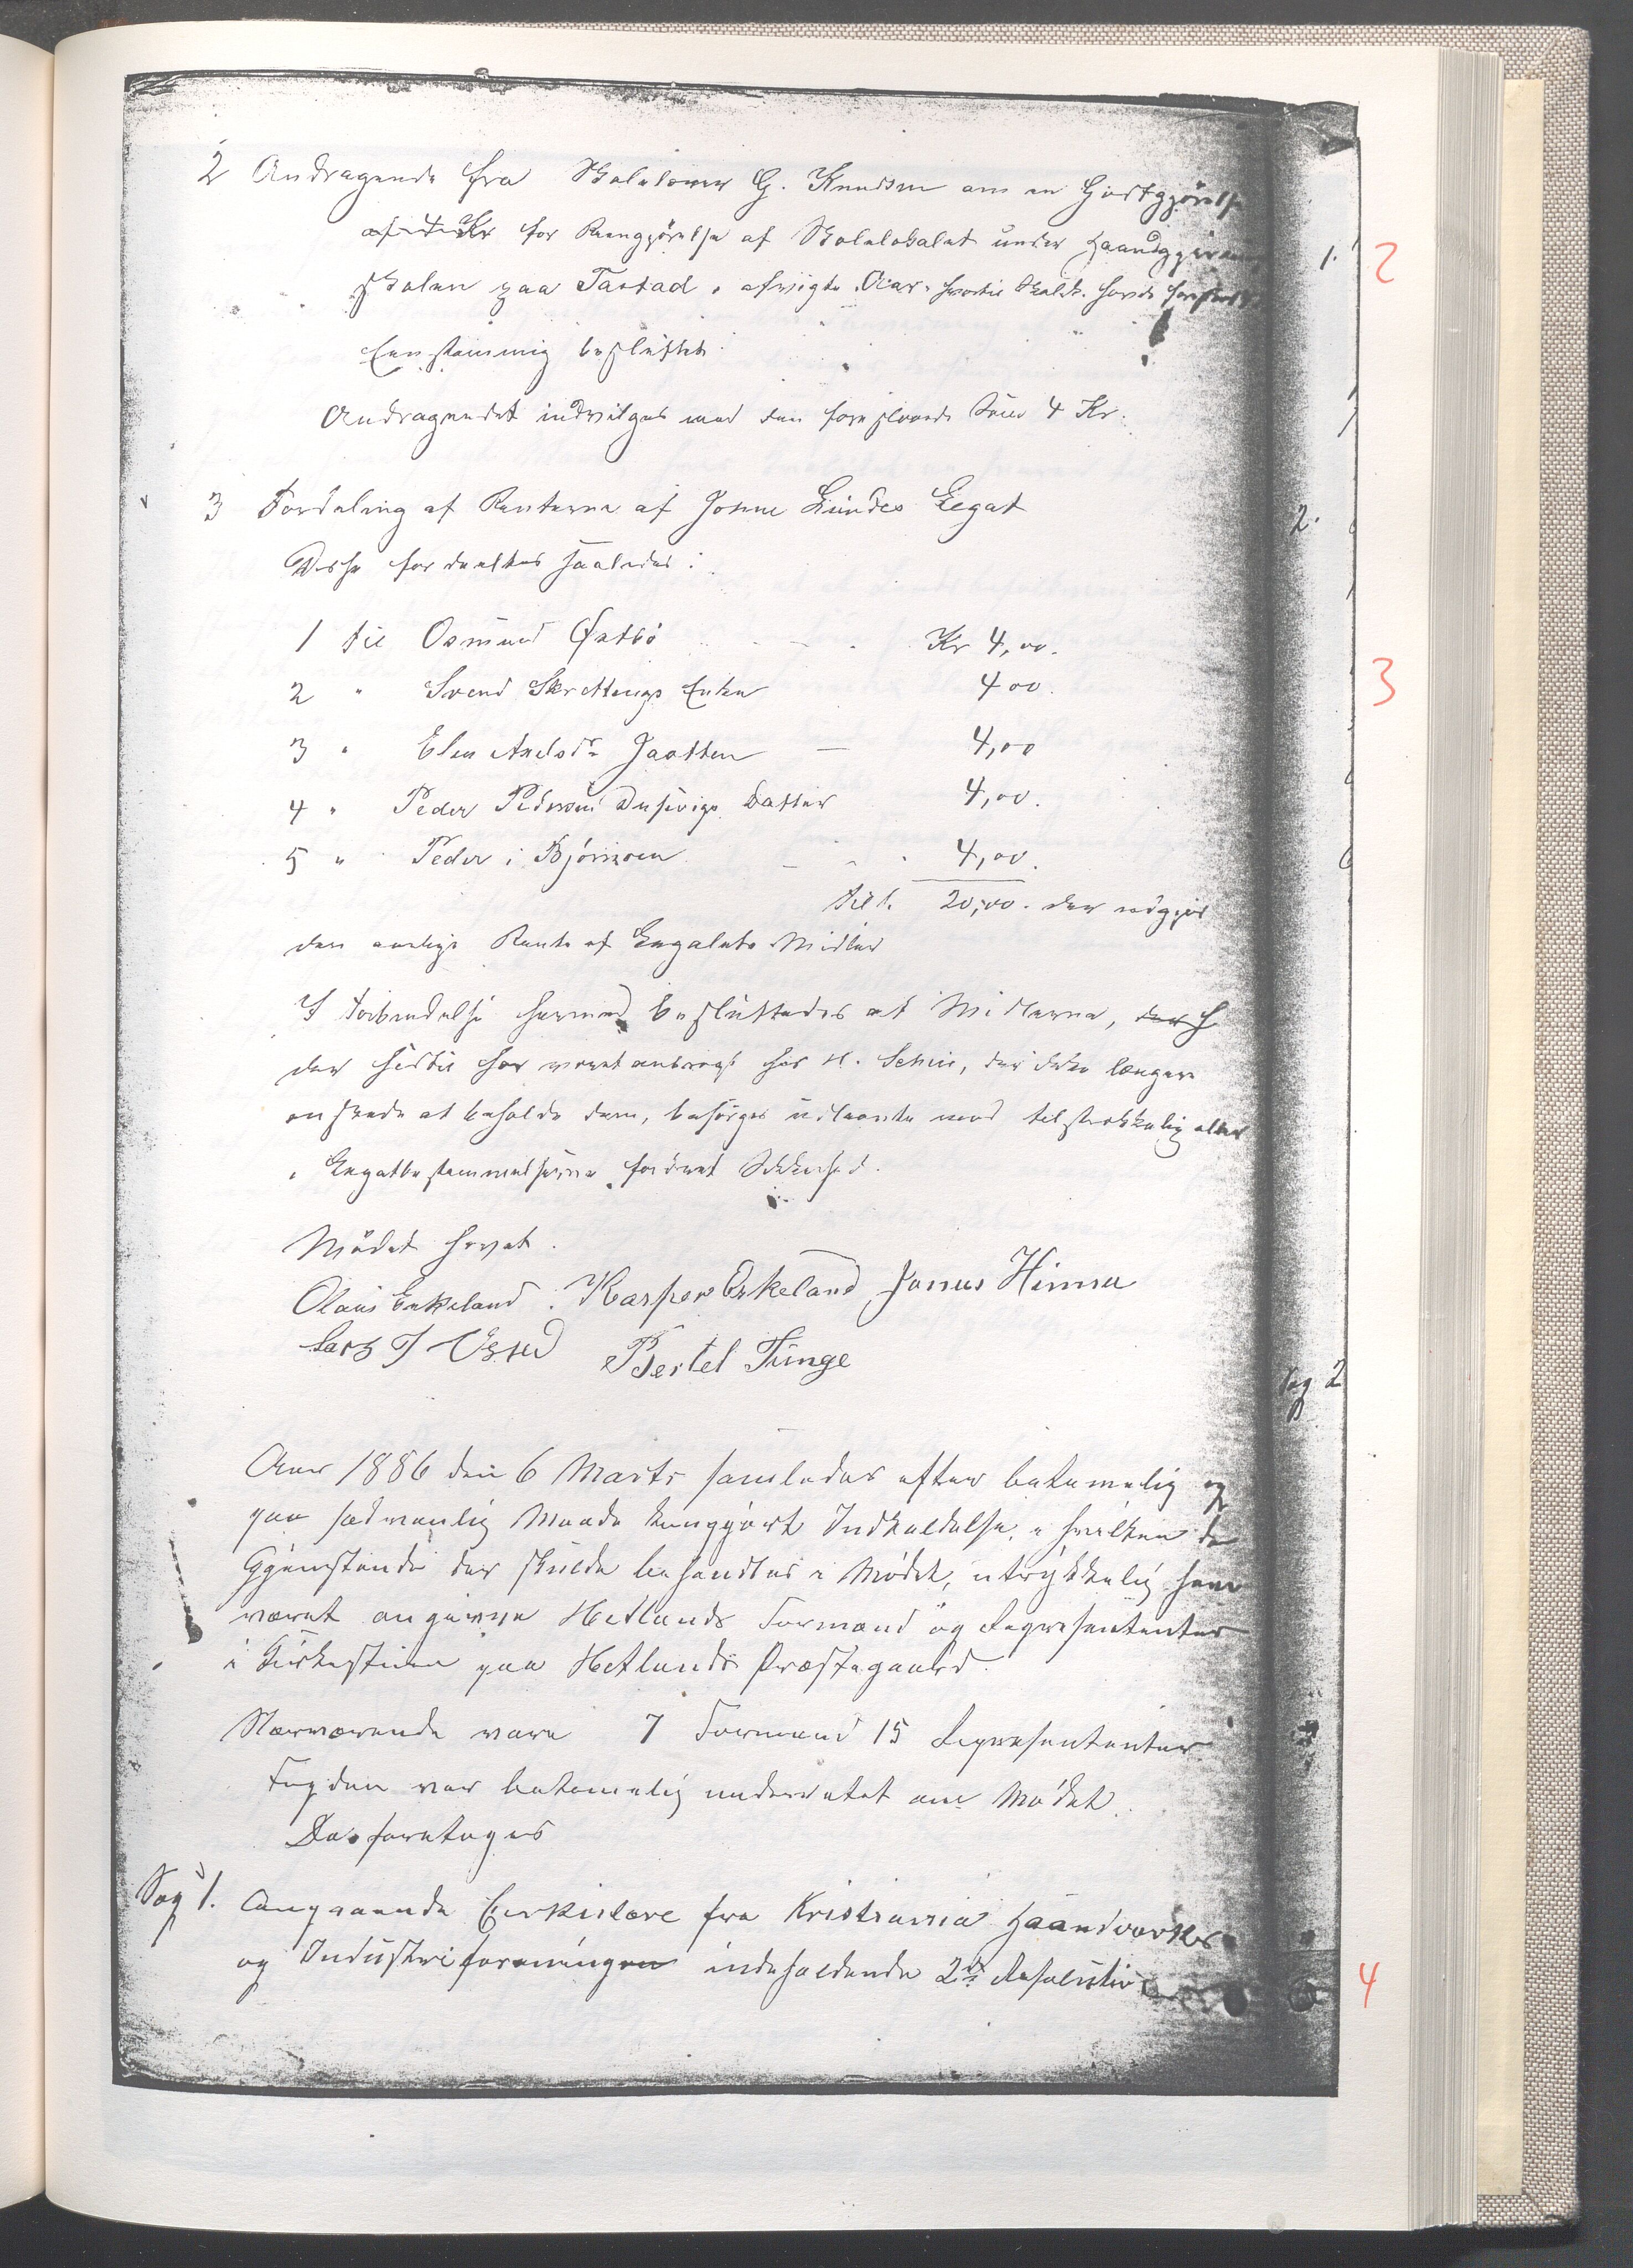 2 Andragende fra Skolelærer G. Knudsen om en Godtgjörelse
af 4 Kr for Reengjörelse af Skolelokalet under Haandgjernings
skolen paa Tastad i afvigte Aar. hvortil Skolek. havde foreslaaet
Eenstemmig besluttet.
Andragendet indvilges med den foreslaaede Sum 4 Kr.
3 Fordeling af Renterne af Jonne Lundes Legat
Disse fordeeltes saaledes:
1 til Osmund Østbö Kr 4,00.
2 " Svend Skrettings Enke 4 00.
3 " Elen Axelsdr Jaatten 4,00
4 " Peder Pedersen Dusevigs Datter 4,00.
5 " Peder i Björnmoen 4,00.
tils. 20,00. der udgjör
den aarlige Rente af Legatets Midler
I Forbindelse hermed besluttedes at Midlerne, der h
der hidtil har været anbragt hos H. Schiie, der ikke længere
önskede at beholde dem, besörges udlaante mod tilstrækkelig eller
i Legatbestemmelserne fordret Sikkerhed.
Mödet hævet.
Olaus Eskeland. Kasper Eskeland Jonas Hinna
Lars T Ussed Bertel Tunge
Aar 1886 den 6 Marts samledes efter betimelig og
paa sædvanlig Maade kungjort Indkaldelse, i hvilken de
Gjenstande der skulde behandles i Mödet, utrykkelig har
været angivne Hetlands Formænd og Repræsentanter
i Kirkestuen paa Hetlands Præstegaard.
Nærværende vare 7 Formænd 15 Repræsentanter
Fogden var betimelig underrettet om Mödet.
Da foretoges
Sag 1. Angaaende Cirkulære fra Kristiania Haandverks
og Industriforeningen indeholdende 2de Resolution
1.
2.
Sag 2
2
3
4